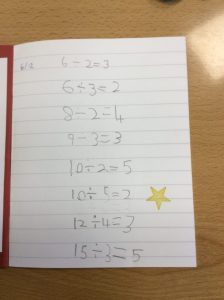 6/2 6-2=3
6÷3=2
8-2=4
9-3=3
10÷2=5
10÷5=2
12÷4=3
15÷3=5